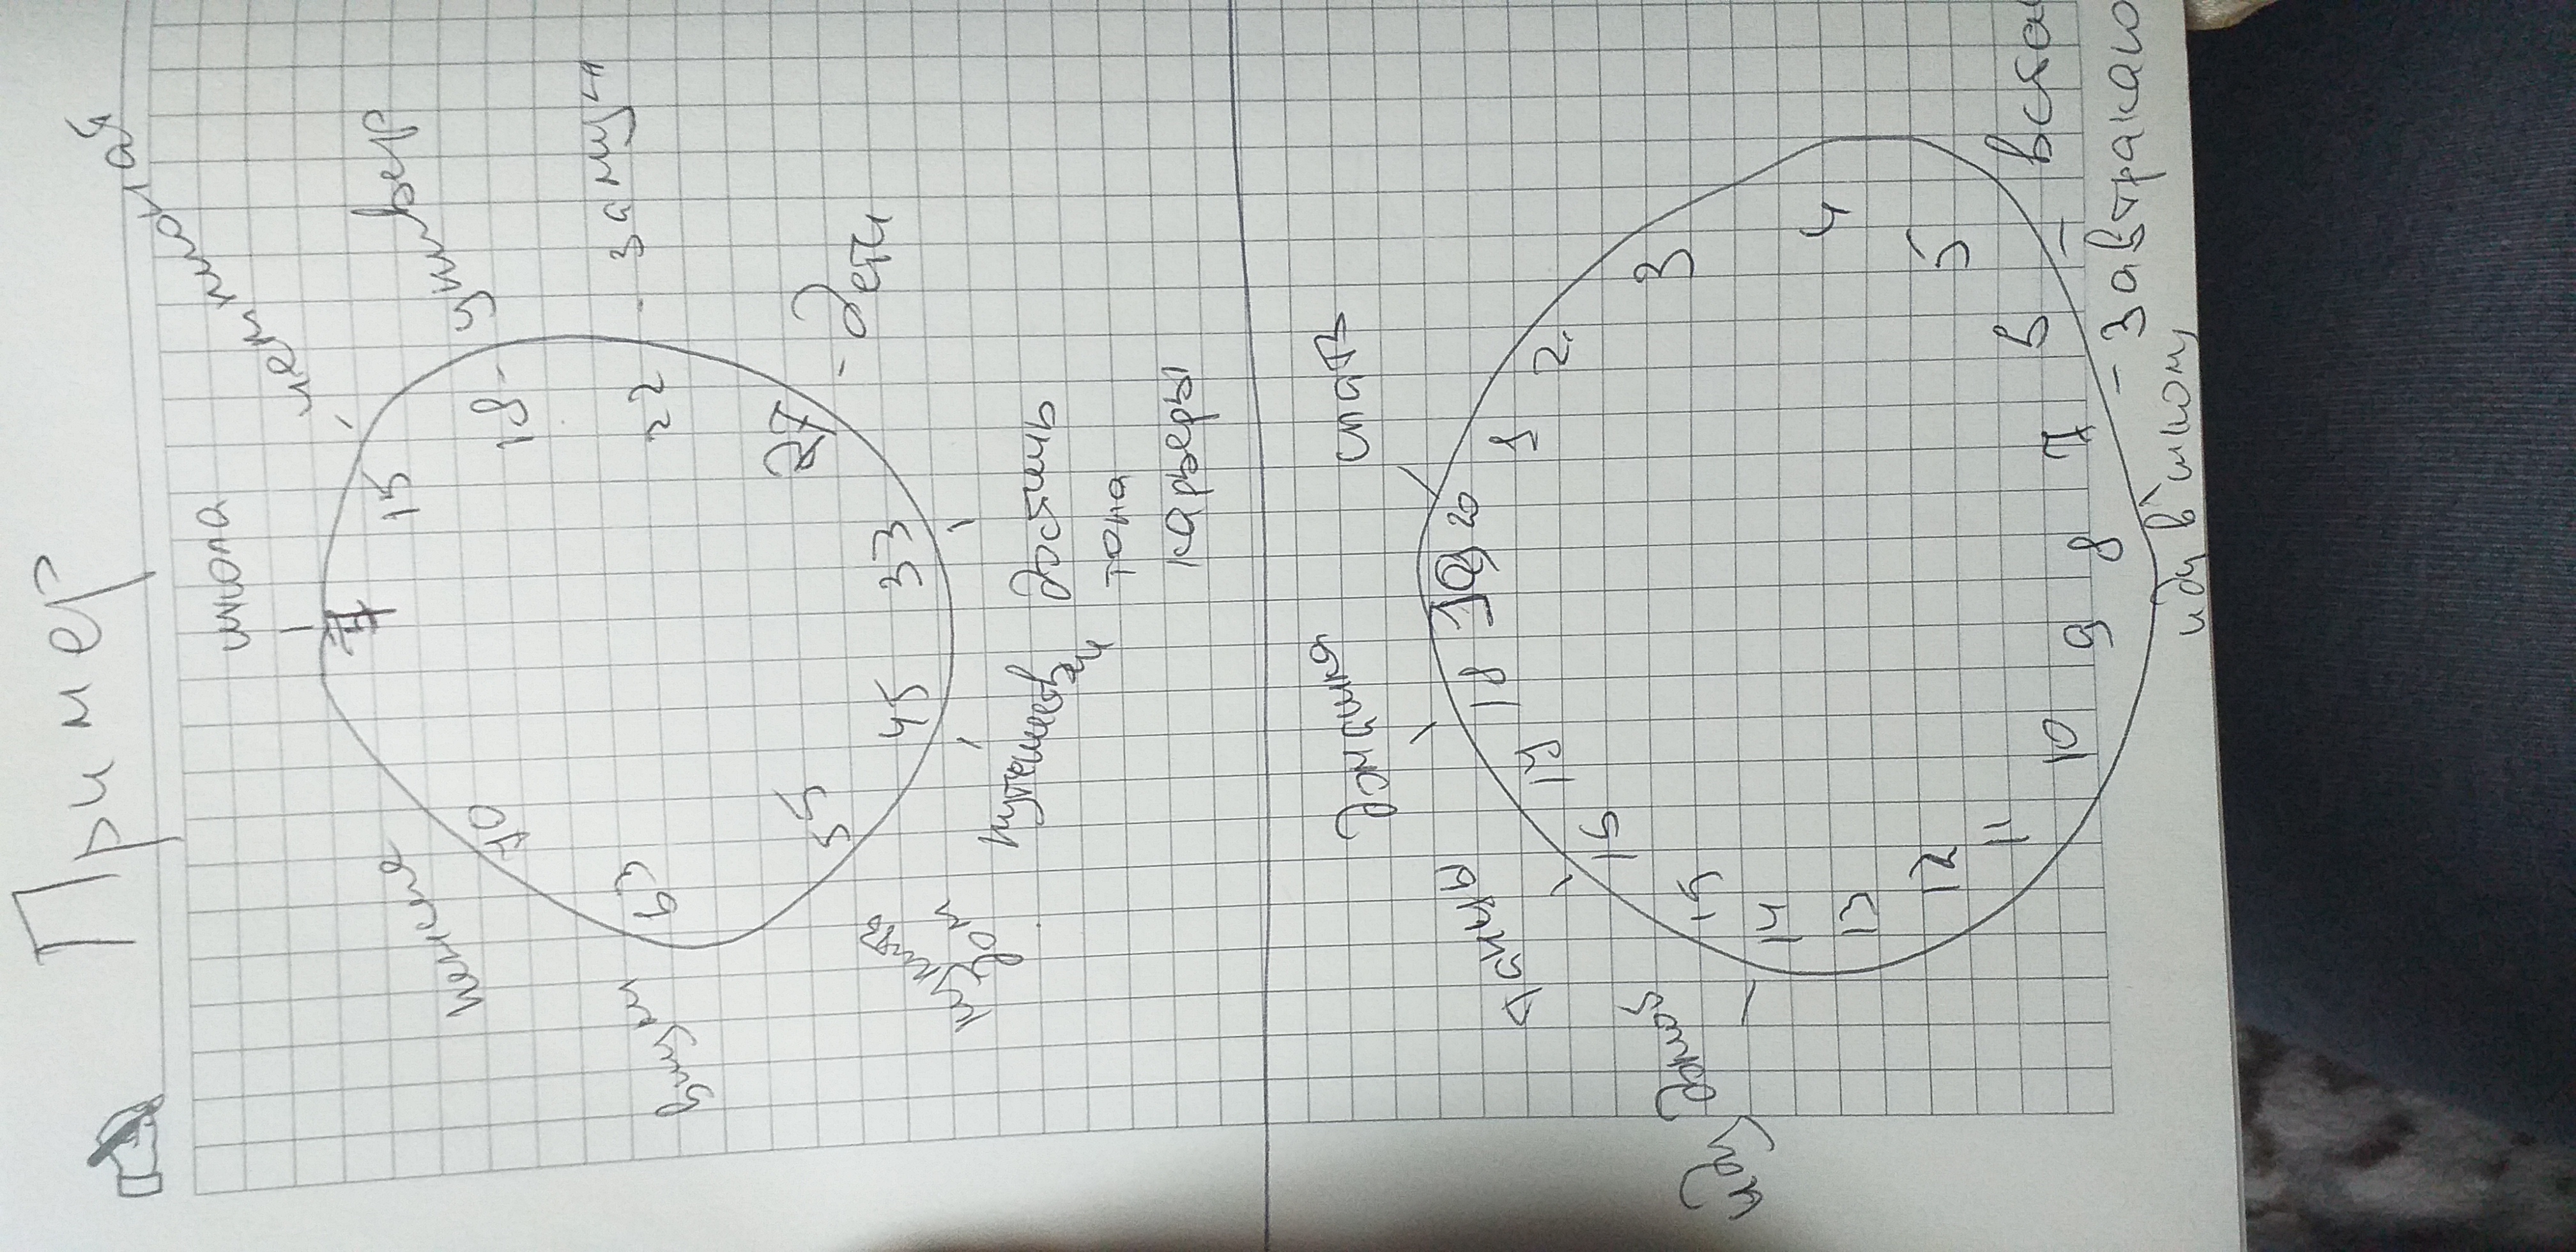 Пример
школа
7
15
летний лагерь
18 -
универ
22
- замуж
27
- дети
33
достичь
топа
карьеры
45
путешествовать
55
63
внуки
70
пенсия
спать
20
19
18
домашка
17
16
танцы
15
14
иду домой
13
12
11
10
9
8
иду в школу
7
- завтракаю
6
- встаю
5
4
3
2
1